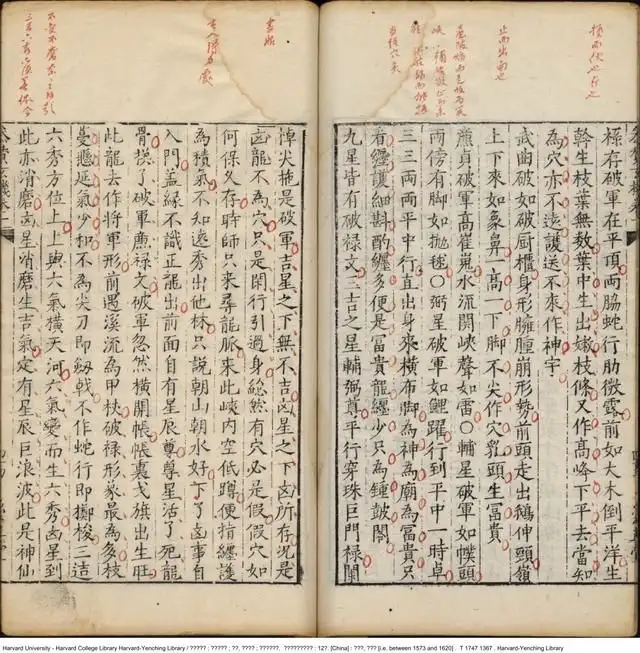 祿存破軍在平頂兩脇蛇行肋微露前如大木倒平洋生
幹生枝葉無數葉中生出嫩枝條又作高峰下平去當知
為穴亦不遠護送不來作神宇
武曲破如破厨櫃身形臃腫崩形勢前頭走出鵝伸頭嶺
上下來如象鼻一高一下脚不尖作穴乳頭生富貴
廉貞破軍高崔嵬水流關峽聲如雷〇輔星破軍如幞頭
兩傍有脚如抛毬〇弼星破軍如鯉躍行到平中一時卓
三三兩兩平中行直出身來橫布脚為神為廟為富貴只
看纏護細斟酌纏多便是富貴龍纏少只為鍾皷閣
九星皆有破祿文三吉之星輔弼尊平行穿珠巨門祿闌
悼尖拖是破軍吉星之下無不吉凶星之下凶所存况是
凶龍不為穴只是閑行引過身總然有穴必是假假穴如
何保久存時師只來尋龍脉來此峽内空低蹲便指纏護
為積氣不知遠秀出他林只說朝山朝水好下了凶事自
入門盖緣不識正龍出前面自有星辰尊尊星活了死龍
骨換了破軍廉祿文破軍忽然橫開帳帳裏戈旗出生旺
此龍去作將軍形前遇溪流為甲杖破祿形象最為多枝
蔓懸延氣少和不為尖刀即劔戟不作蛇行即擲梭三吉
六秀方位上上與六氣橫天河六氣變而生六秀凶星到
此亦消磨凶星消磨生吉氣定有星辰巨浪波此是神仙
Harvard University - Harvard College Library Harvard-Yenching Library / ????? : ????? ; ??, ???? ; ??????. ????????? : 12?. [China] : ???, ??? [i.e. between 1573 and 1620] . T 1747 1367 . Harvard-Yenching Library